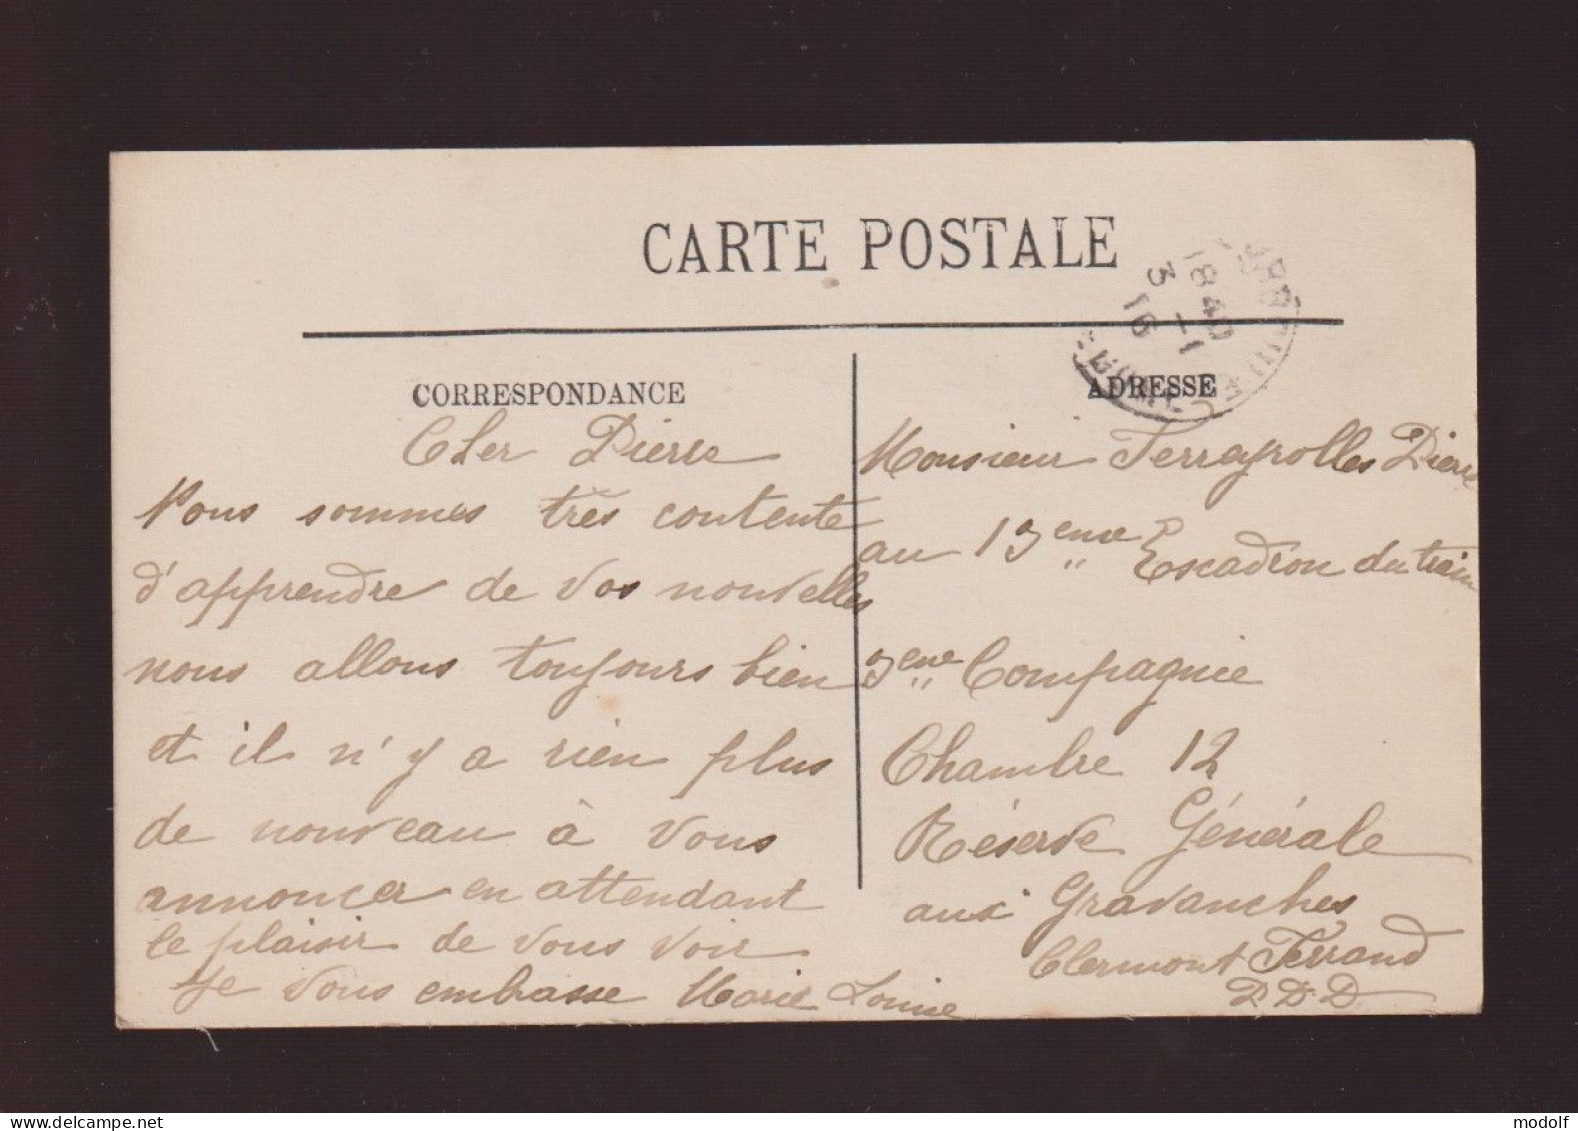 CARTE POSTALE
18 40
3 -1
16
CORRESPONDANCE
Cher Pierre
Nous sommes très contente
d'apprendre de vos nouvelles
nous allons toujours bien
et il n'y a rien plus
de nouveau à vous
annoncer en attendant
le plaisir de vous voir
Je vous embrasse Marie Louise
ADRESSE
Monsieur Terrayrolles Pierre
au 13eme Escadron du train
3eme Compagnie
Chambre 12
Réserve Générale
aux Gravanches
Clermont Ferrand
P.D.D
delcampe.net
modolf